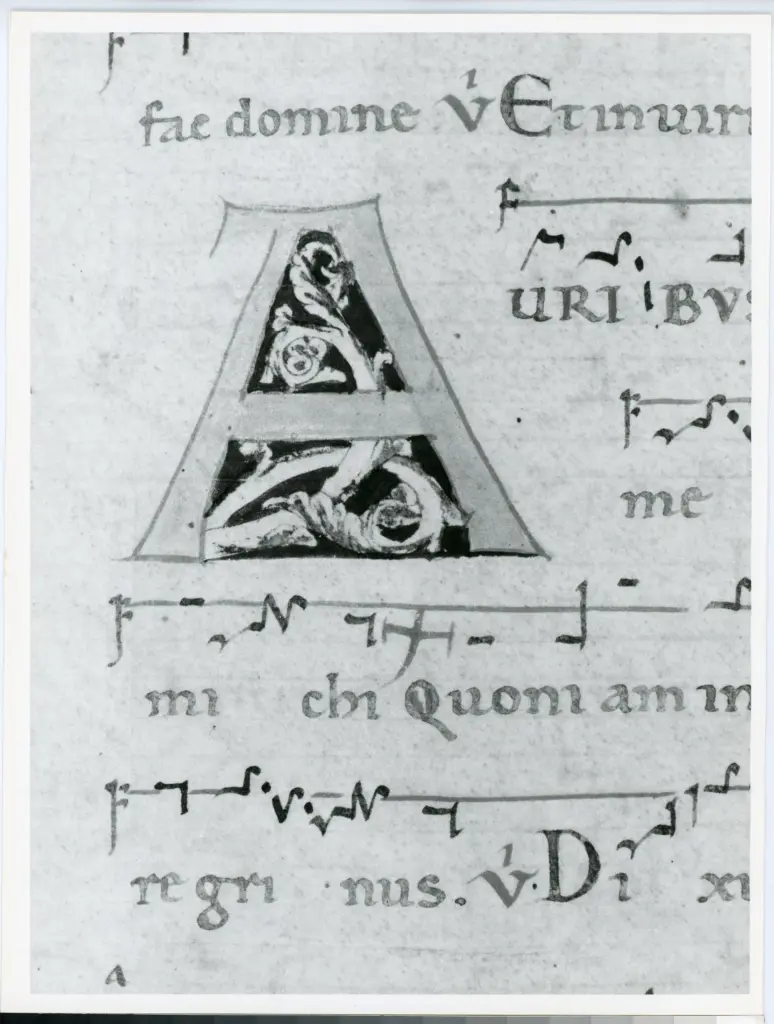 fac domine v̇ Et in uiri
A URIBUS
me
mi chi Quoni am in
re gri nus. v̇. Di xi
A